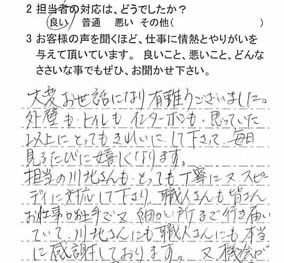 2 担当者の対応は、どうでしたか?
良い 普通 悪い その他( )
3 お客様の声を聞くほど、仕事に情熱とやりがいを
与えて頂いています。良いこと、悪いこと、どんな
ささいな事でもぜひ、お聞かせ下さい。
大変お世話になり有難うございました。
外壁も・トイレも インターホンも・思っていた
以上にとってもきれいにして下さって、毎日
見るたびに嬉しくなります。
担当の川北さんも・とっても丁寧に又スピー
ディに対応して下り、職人さんも皆さん
お仕事がお上手で又、細かい所まで行き届い
ていて、川北さんにも職人さんにも本当
に感謝しております。又機会が